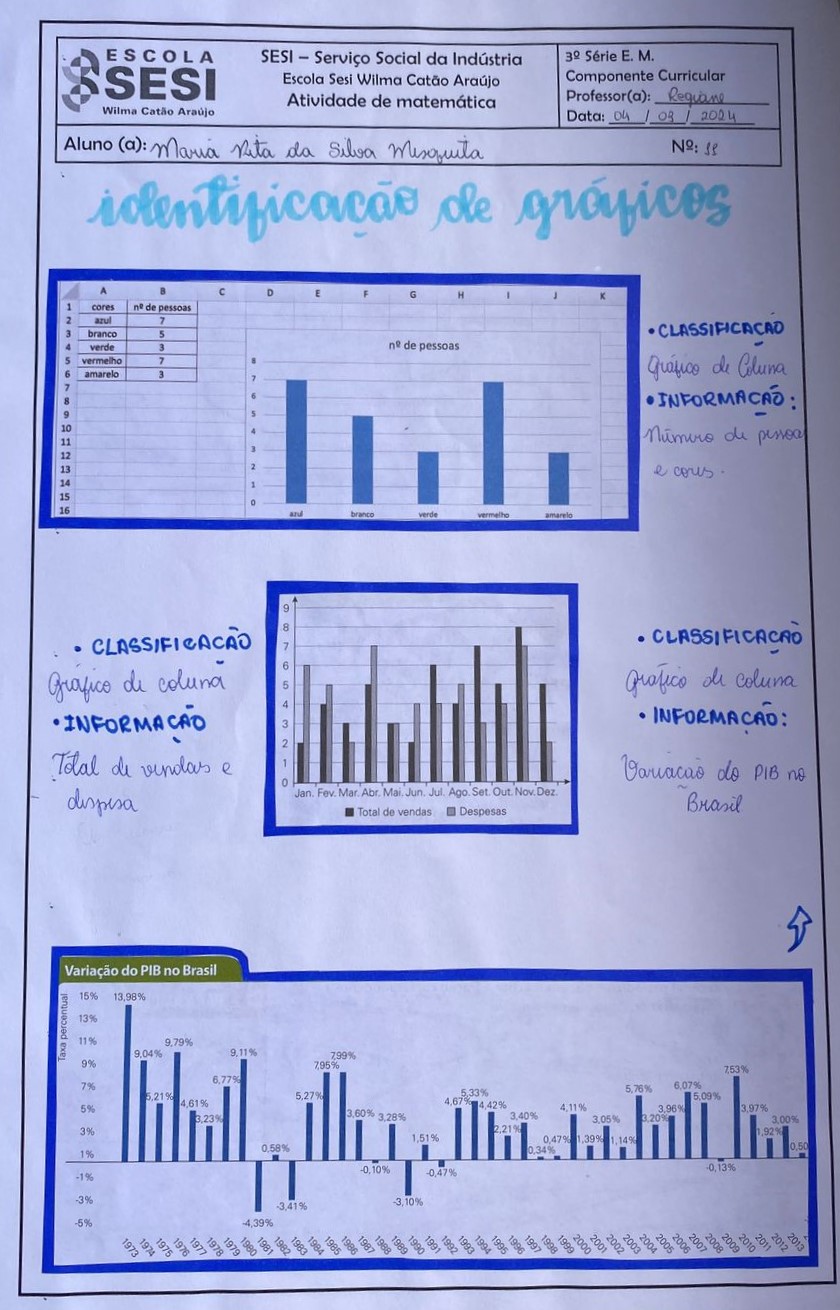 ESCOLA
SESI
Wilma Catão Araújo
SESI – Serviço Social da Indústria
Escola Sesi Wilma Catão Araújo
Atividade de matemática
3º Série E. M.
Componente Curricular
Professor(a): Regiane
Data: 04 / 03 / 2024
Aluno (a): Maria Rita da Silva Mesquita
Nº: 11
identificação de gráficos
A B C D E F G H I J K
1 cores nº de pessoas
2 azul 7
3 branco 5
4 verde 3
5 vermelho 7
6 amarelo 3
7
8
9
10
11
12
13
14
15
16
nº de pessoas
8
7
6
5
4
3
2
1
0
azul branco verde vermelho amarelo
• CLASSIFICAÇÃO
Gráfico de Coluna
• INFORMAÇÃO:
Número de pessoa
e cores.
• CLASSIFICAÇÃO
Gráfico de coluna
• INFORMAÇÃO
Total de vendas e
despesa
9
8
7
6
5
4
3
2
1
0
Jan. Fev. Mar. Abr. Mai. Jun. Jul. Ago. Set. Out. Nov. Dez.
Total de vendas Despesas
• CLASSIFICAÇÃO
Gráfico de coluna
• INFORMAÇÃO:
Variação do PIB no
Brasil
Variação do PIB no Brasil
Taxa percentual
15%
13%
11%
9%
7%
5%
3%
1%
-1%
-3%
-5%
13,98% 9,04% 5,21% 9,79% 4,61% 3,23% 6,77% 9,11% -4,39% 0,58% -3,41% 5,27% 7,95% 7,99% 3,60% -0,10% 3,28% -3,10% 1,51% -0,47% 4,67% 5,33% 4,42% 2,21% 3,40% 0,34% 0,47% 4,11% 1,39% 3,05% 1,14% 5,76% 3,20% 3,96% 6,07% 5,09% -0,13% 7,53% 3,97% 1,92% 3,00% 0,50
1973 1974 1975 1976 1977 1978 1979 1980 1981 1982 1983 1984 1985 1986 1987 1988 1989 1990 1991 1992 1993 1994 1995 1996 1997 1998 1999 2000 2001 2002 2003 2004 2005 2006 2007 2008 2009 2010 2011 2012 2013